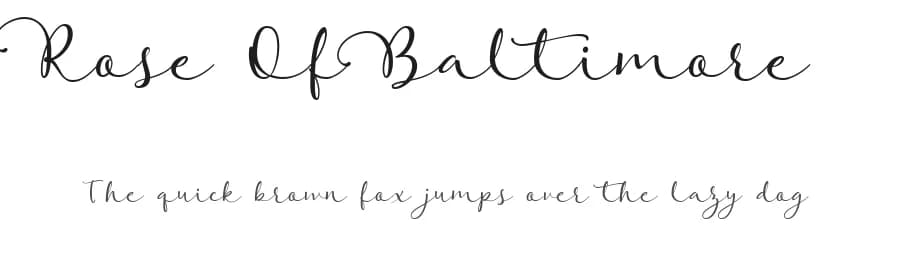 Rose Of Baltimore
The quick brown fox jumps over the lazy dog